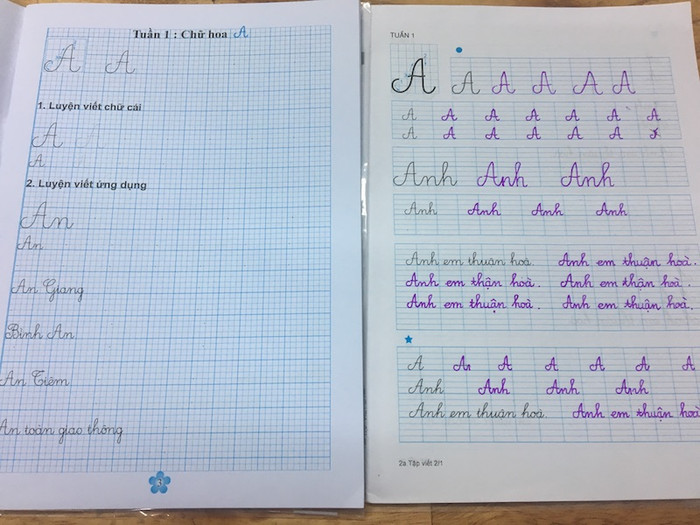 Tuần 1 : Chữ hoa A
A A
1. Luyện viết chữ cái
A A
A
2. Luyện viết ứng dụng
An
An
An Giang
Bình An
An Tiêm
An toàn giao thông
3
TUẦN 1
A A A A A A
A A A A A A A
A A A A A A
Anh Anh Anh
Anh Anh Anh Anh
Anh em thuận hoà. Anh em thuận hoà.
Anh em thận hoà. Anh em thận hoà.
Anh em thuận hoà. Anh em thuận hoà.
A A A A A A A
Anh Anh Anh Anh
Anh em thuận hoà. Anh em thuận hoà
2a Tập viết 2/1